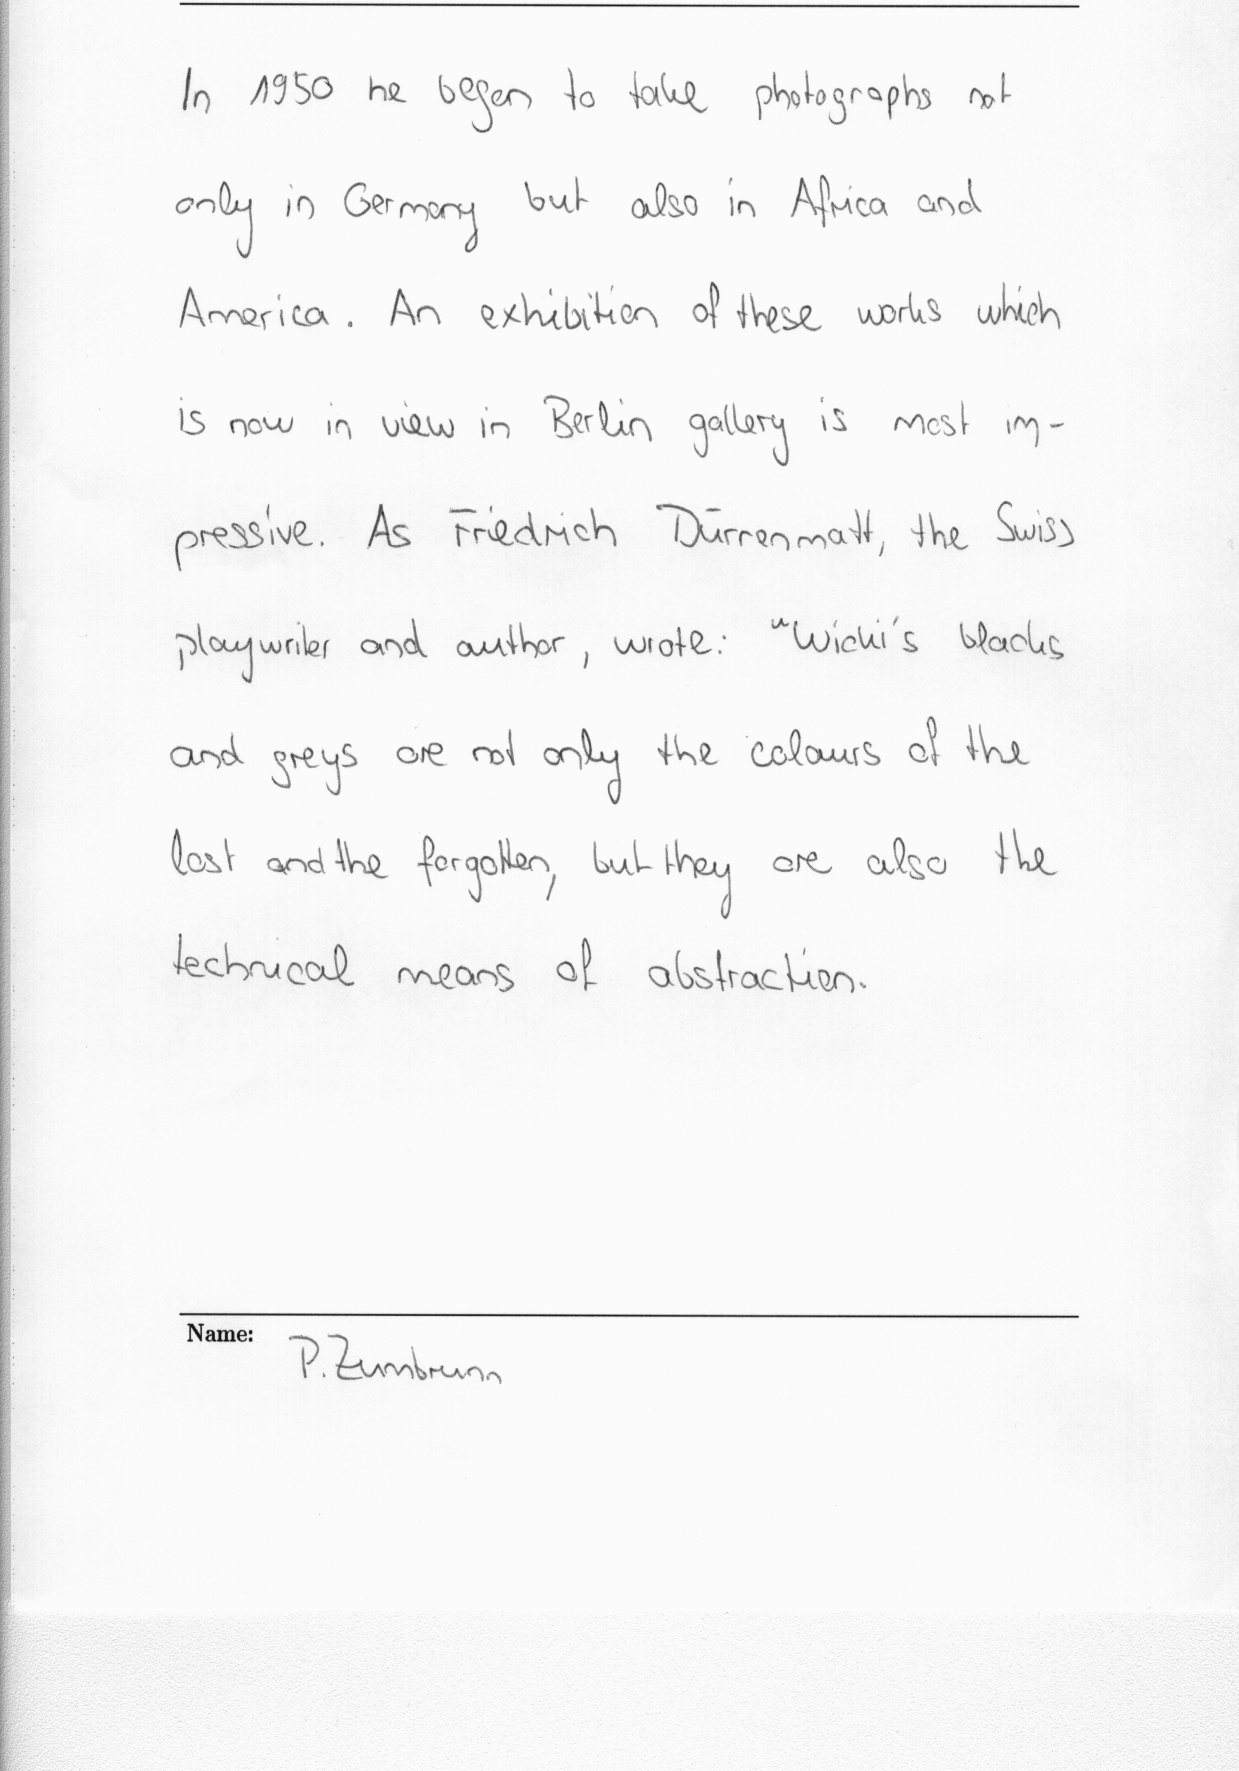 In 1950 he began to take photographs not
only in Germany but also in Africa and
America. An exhibition of these works which
is now in view in Berlin gallery is most im-
pressive. As Friedrich Dürrenmatt, the Swiss
playwriter and author, wrote: "Wicki's blacks
and greys are not only the colours of the
lost and the forgotten, but they are also the
technical means of abstraction.
Name: P. Zumbrunn